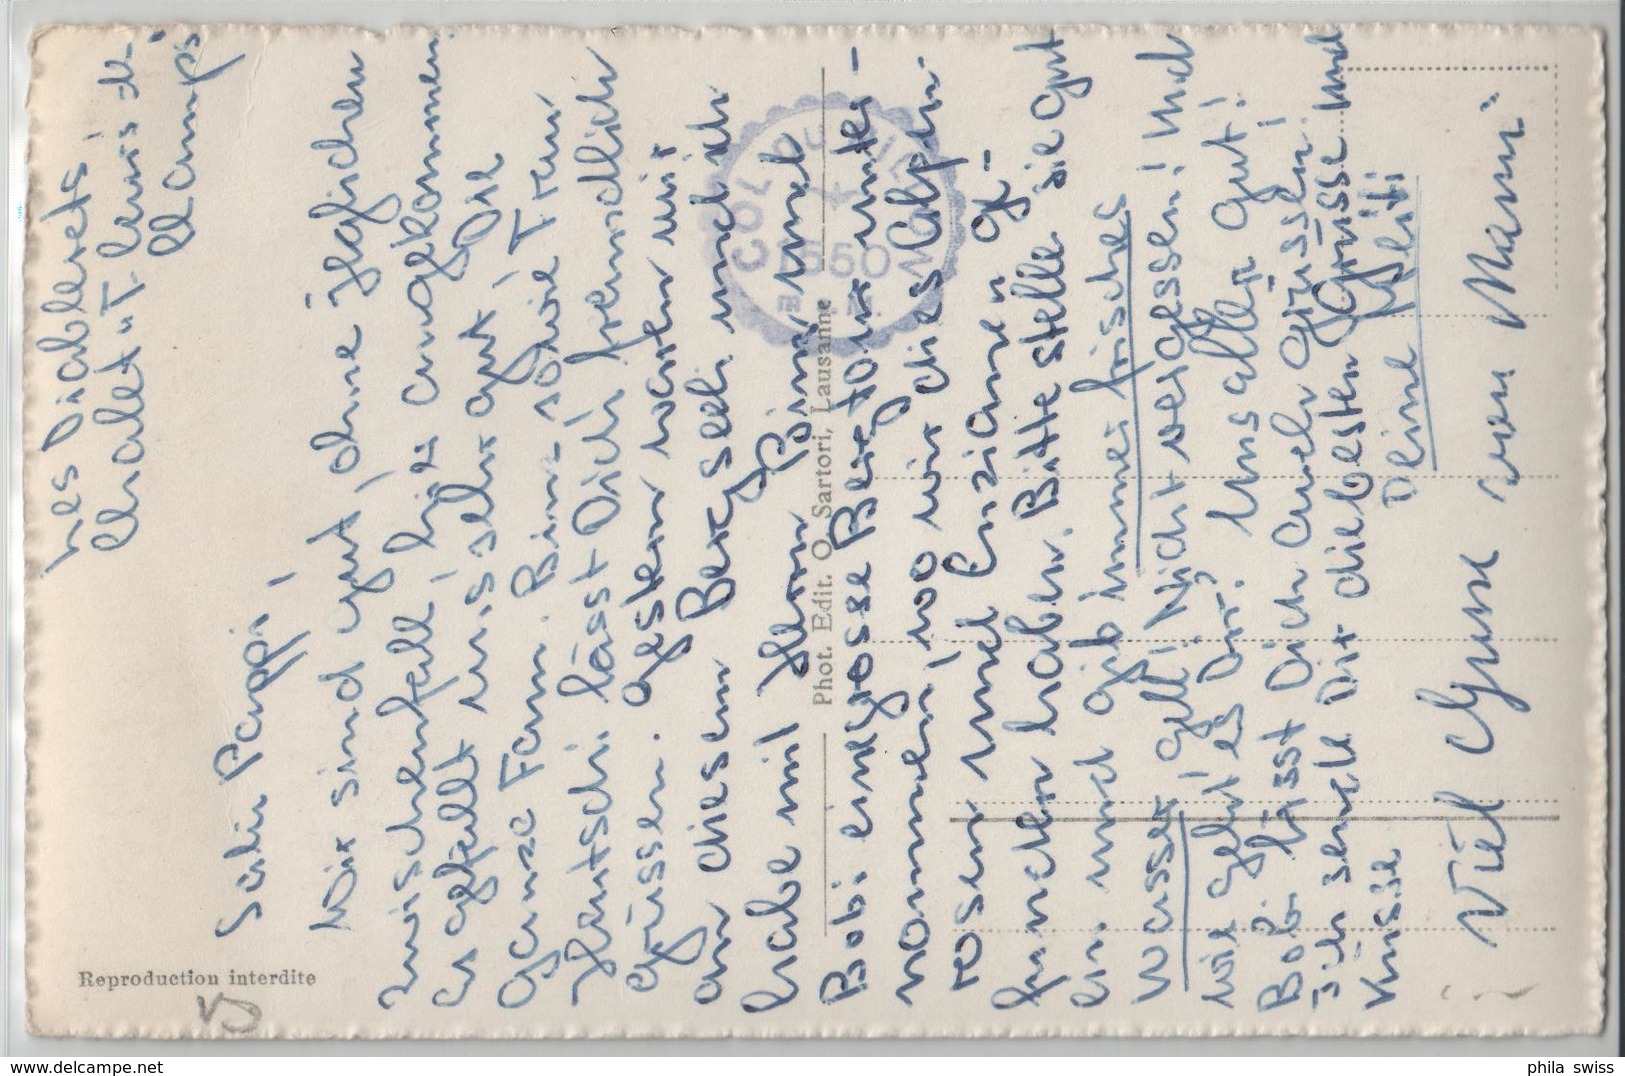 Les Diablerets
Chalet "T'leus' di-
Champs"
Salü Pappi,
Wir sind gut, ohne jeglichen
Zwischenfall, hier angekommen.
Es gefällt uns sehr gut, Die
Ganze Fam. Bim- sowie Frau
Hentschi lässt Dich freundlich
Grüssen. Gestern waren wir
an diesem Bergseeli und ich
habe mit Herrn Bim und
Bobi eine grosse Bergtour unter-
nommen, wo wir dies Alpen-
rosen und Enziane
funden haben. Bitte stelle sie gut
ein und gib immer frisches
Wasser, gell! Nicht vergessen! Und
wie geht es Dir? Uns allen gut!
Bobi lässt Dich auch grüssen!
Ich sende Dir die besten Grüsse und
Küsse Deine
Viel Grüsse von Mammi
Reproduction interdite
Phot. Edit. O. Sartori, Lausanne
COL DU PILLON
1550 m
phila swiss